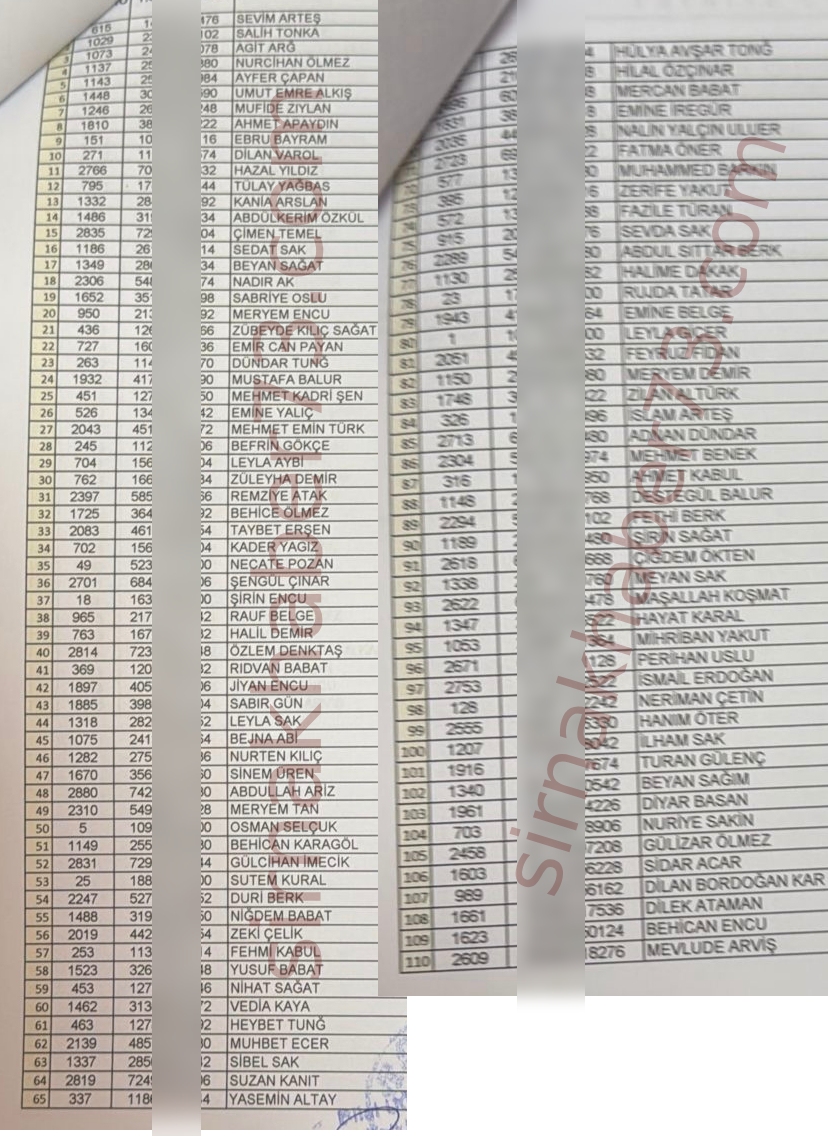 1 615 14 476 SEVİM ARTEŞ
2 1029 23 102 SALİH TONKA
3 1073 24 078 AGİT ARĞ
4 1137 25 380 NURCİHAN ÖLMEZ
5 1143 25 984 AYFER ÇAPAN
6 1448 30 590 UMUT EMRE ALKIŞ
7 1246 26 248 MUFİDE ZIYLAN
8 1810 38 222 AHMET APAYDIN
9 151 10 16 EBRU BAYRAM
10 271 11 574 DİLAN VAROL
11 2766 70 32 HAZAL YILDIZ
12 795 17 44 TÜLAY YAĞBAS
13 1332 28 92 KANİA ARSLAN
14 1486 31 34 ABDÜLKERİM ÖZKÜL
15 2835 72 04 ÇİMEN TEMEL
16 1186 26 14 SEDAT SAK
17 1349 28 34 BEYAN SAĞAT
18 2306 54 74 NADIR AK
19 1652 35 98 SABRİYE OSLU
20 950 21 92 MERYEM ENCU
21 436 12 66 ZÜBEYDE KILIÇ SAĞAT
22 727 160 36 EMİR CAN PAYAN
23 263 114 70 DÜNDAR TUNĞ
24 1932 417 90 MUSTAFA BALUR
25 451 127 50 MEHMET KADRİ ŞEN
26 526 134 42 EMİNE YALIÇ
27 2043 451 72 MEHMET EMİN TÜRK
28 245 112 06 BEFRİN GÖKÇE
29 704 156 04 LEYLA AYBİ
30 762 166 34 ZÜLEYHA DEMİR
31 2397 585 66 REMZİYE ATAK
32 1725 364 92 BEHİCE ÖLMEZ
33 2083 461 54 TAYBET ERŞEN
34 702 156 04 KADER YAGIZ
35 49 523 00 NECATE POZAN
36 2701 684 06 ŞENGÜL ÇINAR
37 18 163 00 ŞİRİN ENCU
38 965 217 42 RAUF BELGE
39 763 167 02 HALİL DEMİR
40 2814 723 48 ÖZLEM DENKTAŞ
41 369 120 82 RIDVAN BABAT
42 1897 405 06 JİYAN ENCU
43 1885 398 04 SABIR GÜN
44 1318 282 52 LEYLA SAK
45 1075 241 54 BEJNA ABİ
46 1282 275 86 NURTEN KILIÇ
47 1670 356 60 SİNEM ÜREN
48 2880 742 80 ABDULLAH ARİZ
49 2310 549 28 MERYEM TAN
50 5 109 00 OSMAN SELÇUK
51 1149 255 80 BEHİCAN KARAGÖL
52 2831 729 44 GÜLCİHAN İMECİK
53 25 188 00 SUTEM KURAL
54 2247 527 62 DURİ BERK
55 1488 319 50 NİĞDEM BABAT
56 2019 442 54 ZEKİ ÇELİK
57 253 113 4 FEHMİ KABUL
58 1523 326 48 YUSUF BABAT
59 453 127 46 NİHAT SAĞAT
60 1462 313 72 VEDİA KAYA
61 463 127 02 HEYBET TUNĞ
62 2139 485 30 MUHBET ECER
63 1337 285 42 SİBEL SAK
64 2819 724 06 SUZAN KANIT
65 337 118 4 YASEMİN ALTAY
26 4 HÜLYA AVŞAR TONĞ
21 8 HİLAL ÖZÇINAR
60 8 MERCAN BABAT
1831 38 8 EMİNE İREGÜR
2035 44 8 NALİN YALÇIN ULUER
2723 69 2 FATMA ÖNER
72 577 13 0 MUHAMMED BARNİN
73 386 12 6 ZERİFE YAKUT
74 572 13 88 FAZİLE TÜRAN
75 915 20 76 SEVDA SAK
76 2289 54 80 ABDUL SITTAR BERK
77 1130 25 82 HALİME DAKAK
78 23 1 00 RUJDA TATAR
79 1943 4 64 EMİNE BELGE
80 1 1 00 LEYLA GİÇER
81 2051 4 32 FEYRUZ FİDAN
82 1150 2 80 MERYEM DEMİR
83 1748 3 22 ZİLAN ALTÜRK
84 326 1 496 İSLAM ARTEŞ
85 2713 6 480 ADNAN DÜNDAR
86 2304 5 974 MEHMET BENEK
87 316 950 AHMET KABUL
88 1148 768 DESTEGÜL BALUR
89 2294 102 FETHİ BERK
90 1189 480 ŞİRİN SAĞAT
91 2618 668 ÇİĞDEM ÖKTEN
92 1338 760 MEYAN SAK
93 2622 478 MAŞALLAH KOŞMAT
94 1347 522 HAYAT KARAL
95 1053 364 MİHRİBAN YAKUT
96 2671 128 PERİHAN USLU
97 2753 522 İSMAİL ERDOĞAN
98 128 2242 NERİMAN ÇETİN
99 2555 5330 HANIM ÖTER
100 1207 8042 İLHAM SAK
101 1916 7674 TURAN GÜLENÇ
102 1340 0542 BEYAN SAĞIM
103 1961 4226 DİYAR BASAN
104 703 8906 NURİYE SAKİN
105 2458 7208 GÜLİZAR ÖLMEZ
106 1603 6228 SİDAR ACAR
107 989 6162 DİLAN BORDOĞAN KAR
108 1661 7536 DİLEK ATAMAN
109 1623 60124 BEHİCAN ENCU
110 2609 18276 MEVLUDE ARVİŞ
sirnakhaber73.com
sirnakhaber73.com